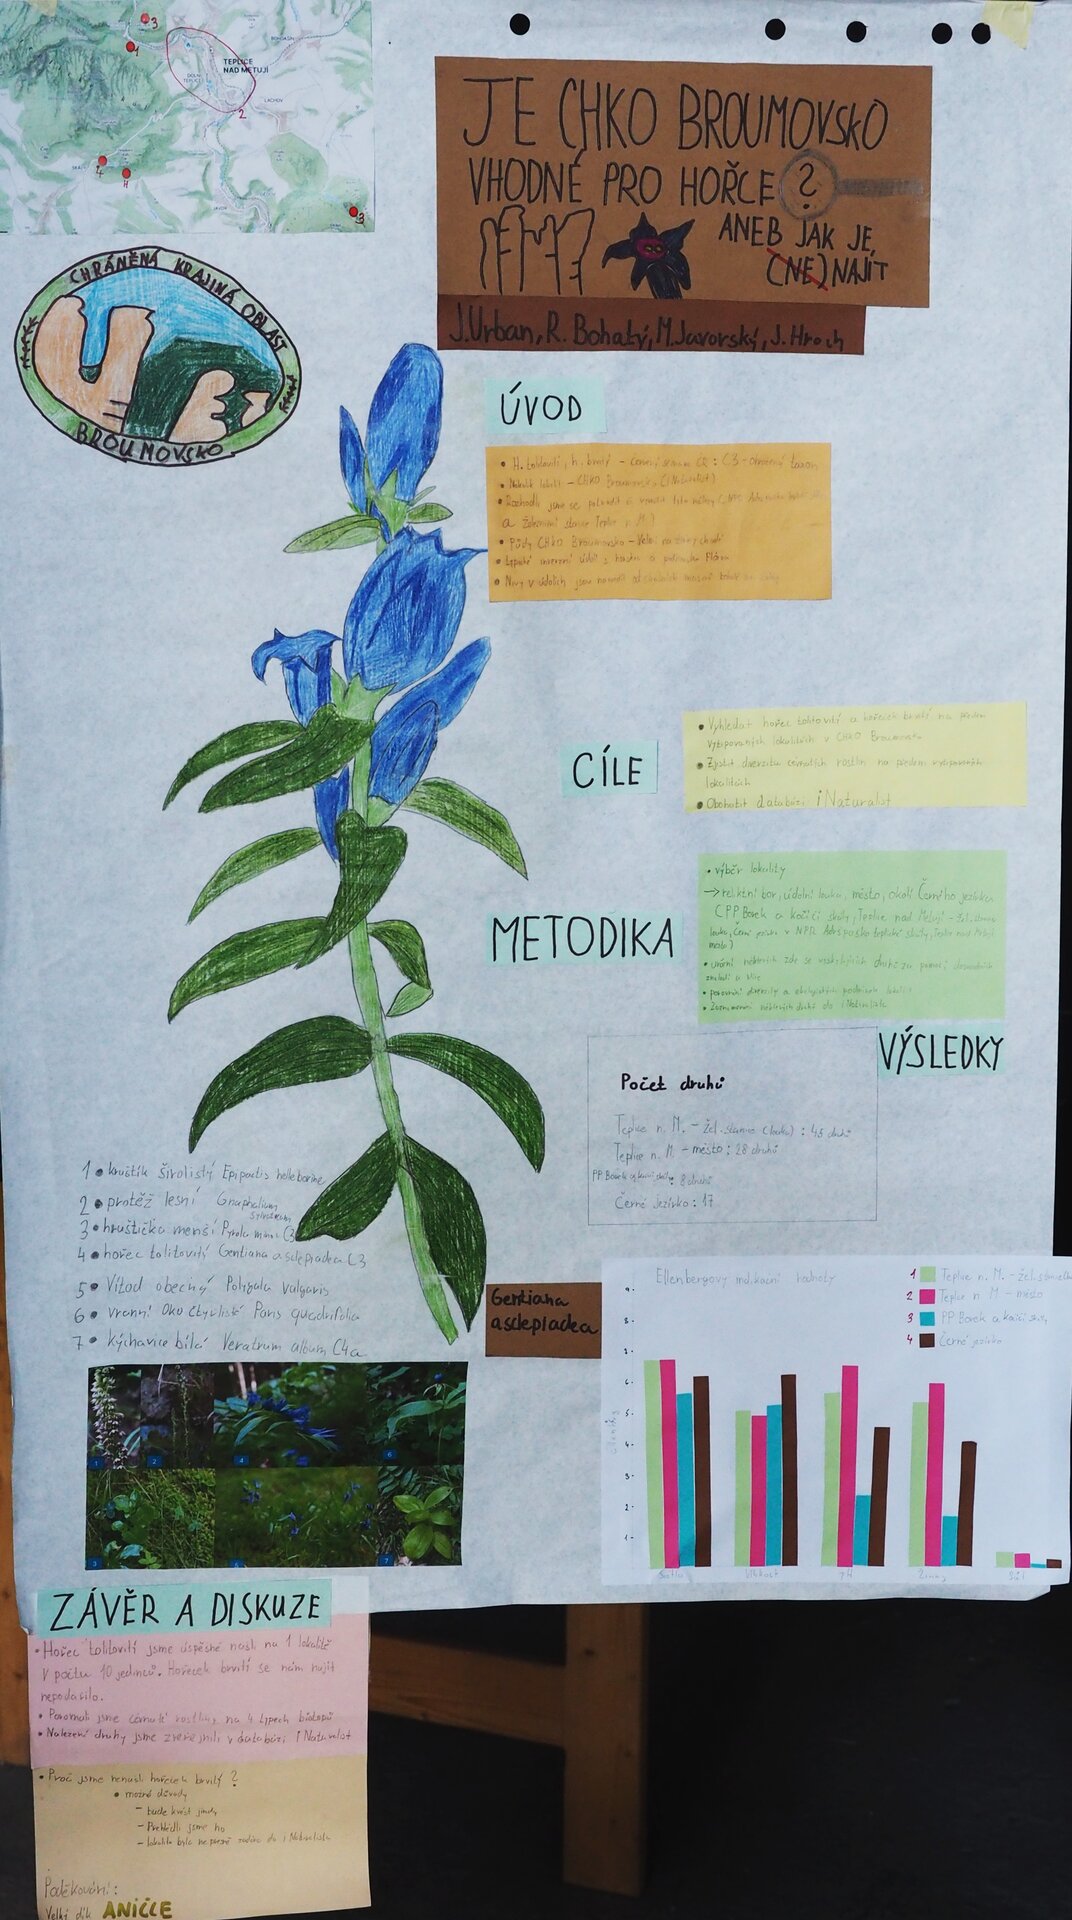 TEPLICE
NAD METUJÍ
DOLNÍ
TEPLICE
LACHOV
3
2
3
CHRÁNĚNÁ KRAJINÁ OBLAST
BROUMOVSKO
JE CHKO BROUMOVSKO
VHODNÉ PRO HOŘCE ?
ANEB JAK JE
(NE)NAJÍT
J.Urban, R. Bohatý, M.Javorský, J. Hroch
ÚVOD
• H. tolitovitý, h. brvitý - červený seznam ČR : C3 - ohrožený taxon
• Několik lokalit - CHKO Broumovsko (iNaturalist)
• Rozhodli jsme se
a železniční stanice Teplice n. M.)
• Půdy CHKO Broumovsko - velmi
• údolí s
• Nivy v údolích jsou
CÍLE
• Vyhledat hořec tolitovitý a hořeček brvitý na předem
vytipovaných lokalitách v CHKO Broumovsko
• Zjistit diverzitu cévnatých rostlin na předem vytipovaných
lokalitách
• Obohatit databázi iNaturalist
METODIKA
• výběr lokality
→ reliktní bor, údolní louka, město, okolí Černého jezírka
(PP Borek a kočičí skály, Teplice nad Metují - žel. stanice
louka, Černé jezírko v NPR Adršpašsko teplické skály, Teplice nad Metují
město)
• některých zde se vyskytujících druhů za pomoci
• porovnání diverzity a ekologických podmínek lokalit
• Zaznamenání některých druhů do iNaturalistu
VÝSLEDKY
Počet druhů
Teplice n. M. - žel. stanice (louka) : 45 druhů
Teplice n. M. - město : 28 druhů
PP Borek a kočičí skály : 8 druhů
Černé jezírko : 17
1 • kruštík širolistý Epipactis helleborine
2 • protěž lesní Gnaphalium
sylvaticum
3 • hruštička menší Pyrola minor C3
4 • hořec tolitovitý Gentiana asclepiadea C3
5 • Vítod obecný Polygala vulgaris
6 • vranní oko čtyřlisté Paris quadrifolia
7 • kýchavice bílá Veratrum album C4a
Gentiana
asclepiadea
1 2 4 6
3 5 7
Ellenbergovy indikační hodnoty
1 Teplice n. M. - žel. stanice
2 Teplice n M - město
3 PP Borek a kočičí skály
4 Černé jezírko
9
8
7
6
5
4
3
2
1
Světlo Vlhkost pH Živiny Sůl
ZÁVĚR A DISKUZE
• Hořec tolitovitý jsme úspěšně našli na 1 lokalitě
v počtu 10 jedinců. Hořeček brvitý se nám najít
nepodařilo.
• Porovnali jsme cévnaté rostliny na 4 typech biotopů
• Nalezené druhy jsme zveřejnili v databázi iNaturalist
• Proč jsme nenašli hořeček brvitý ?
• možné důvody
- bude kvést jindy
- Přehlédli jsme ho
- lokalita byla nepřesně zadána do iNaturalistu
Poděkování :
Velký dík ANIČCE